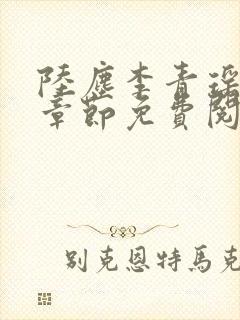 陸塵李青瑤
章節免費閱
別克恩特馬克